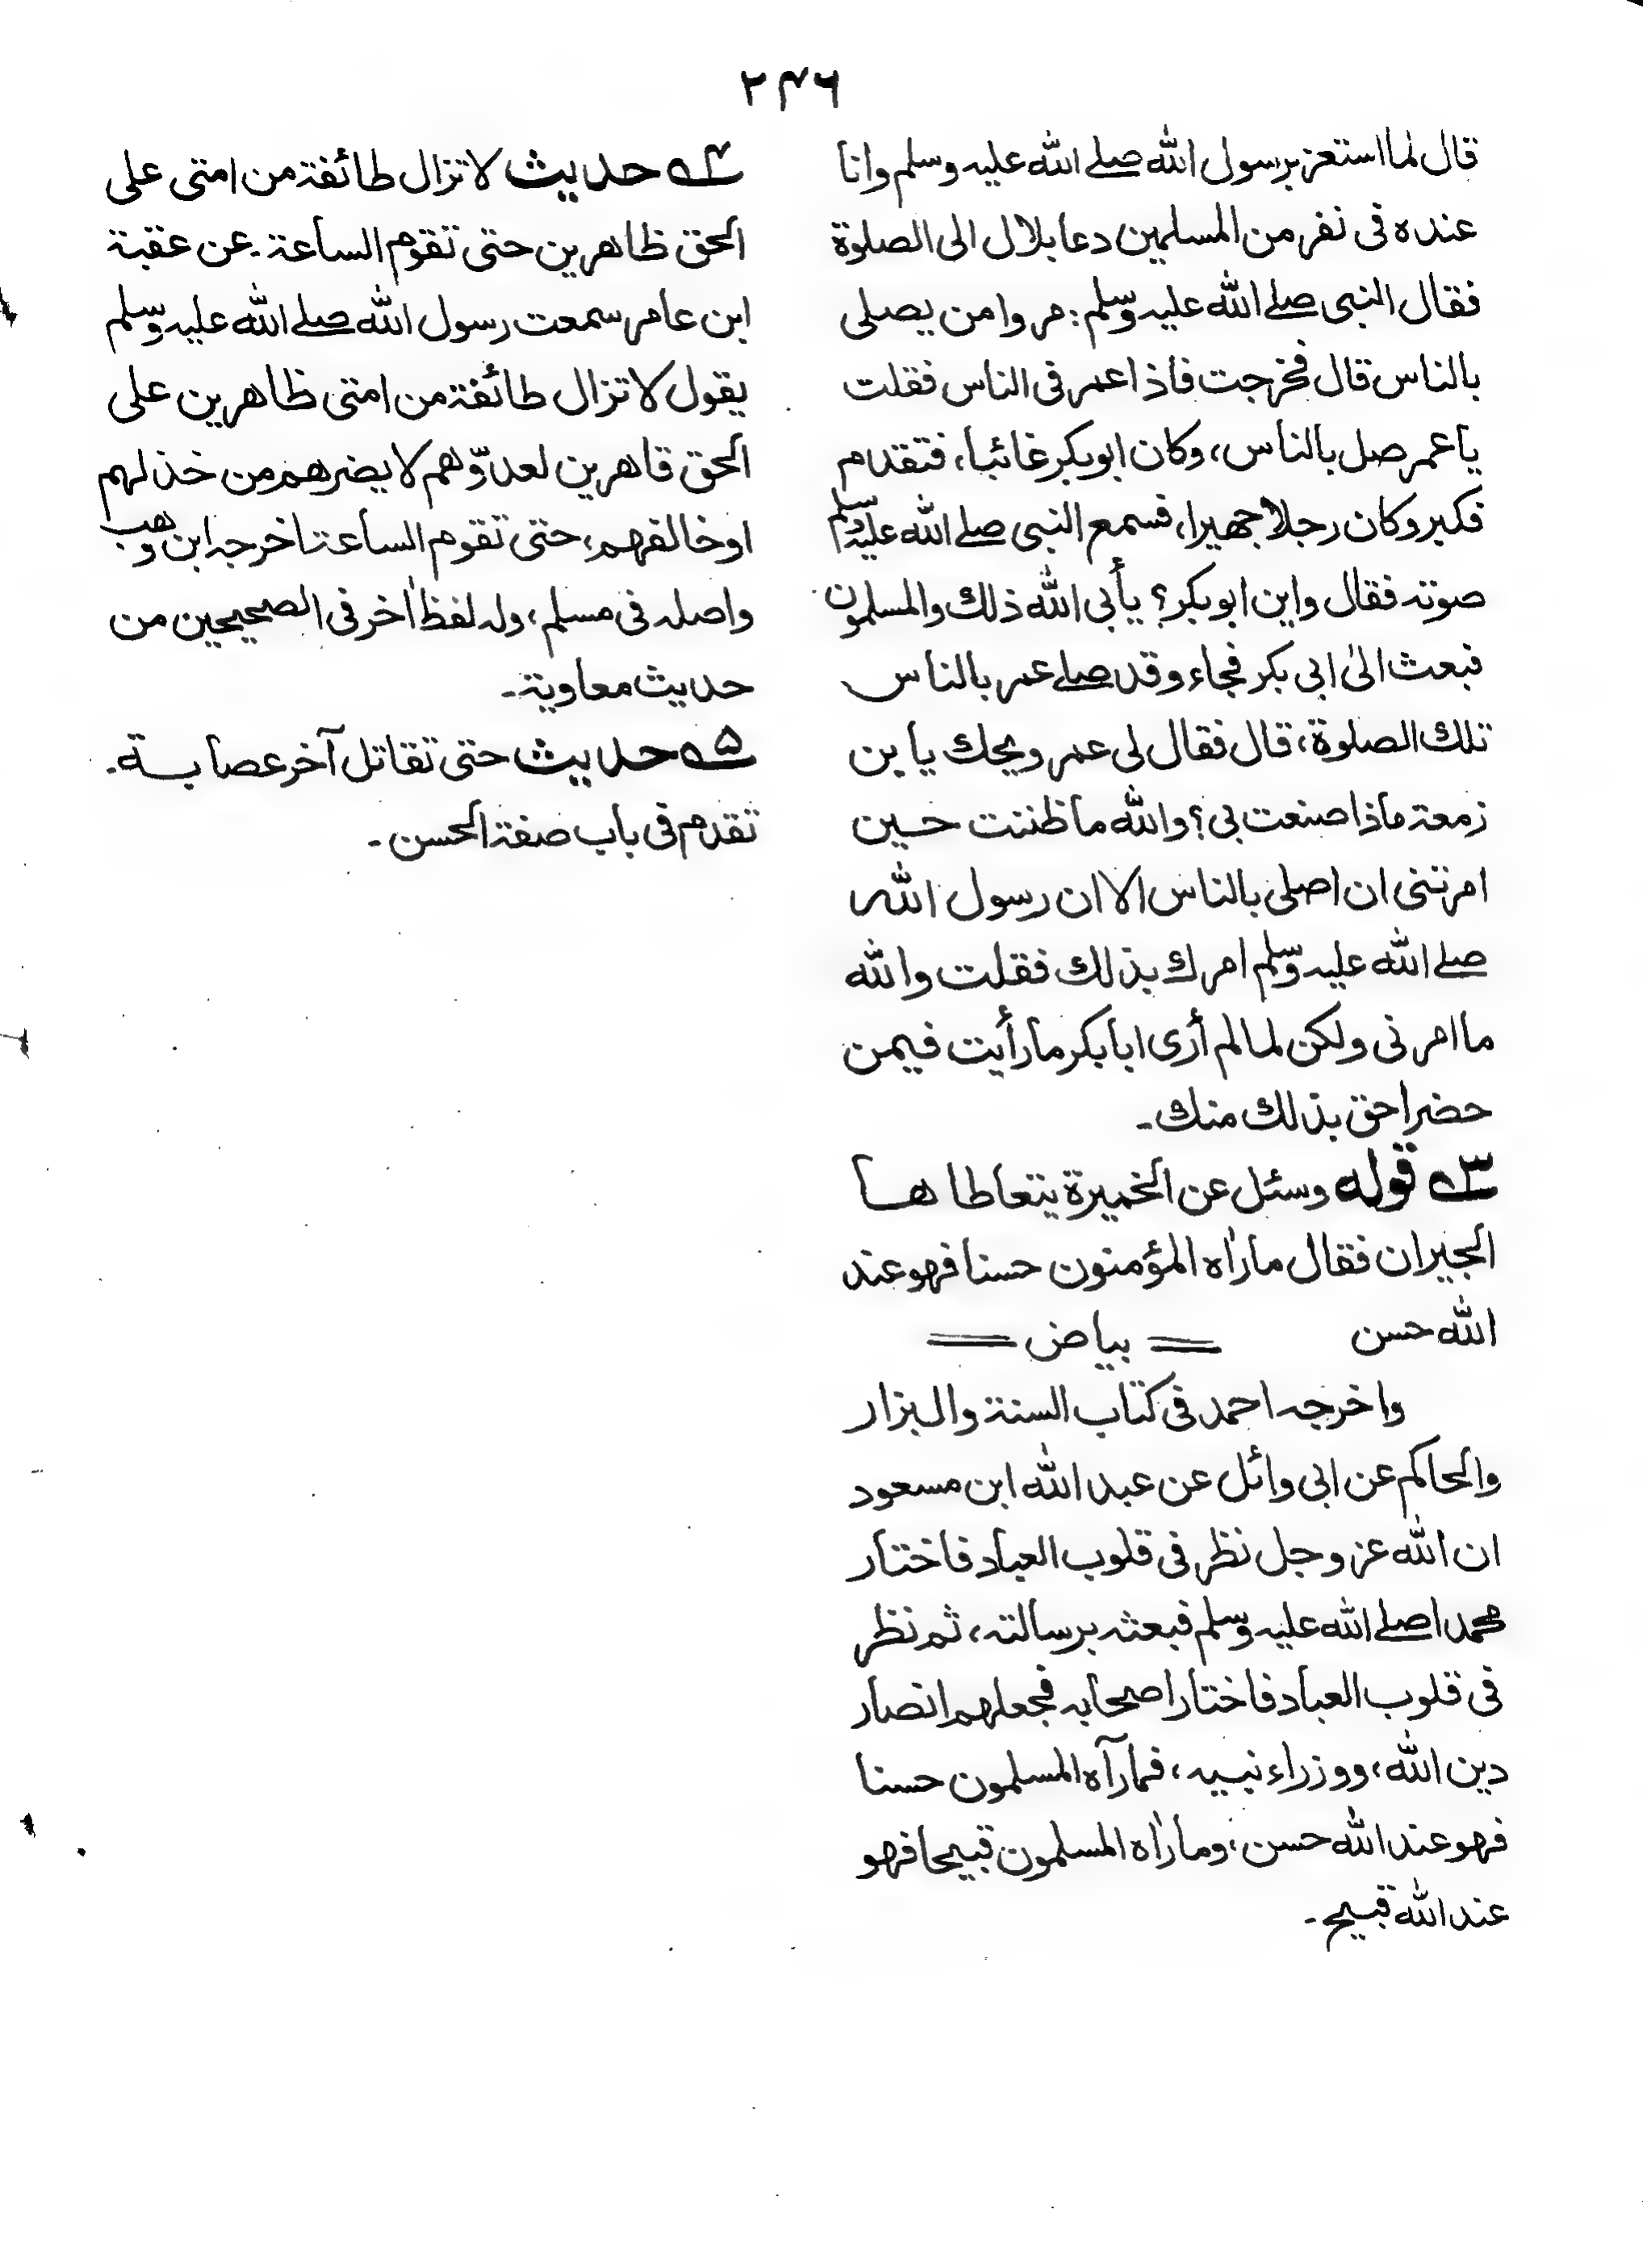 ۲۴۶
قال لما استعز برسول الله صلے الله علیہ وسلم وانا
عنده فی نفر من المسلمین دعا بلال الی الصلوة
فقال النبی صلے الله علیہ وسلم: مروا من یصلی
بالناس قال فخرجت فاذا عمر فی الناس فقلت
یا عمر صل بالناس، وکان ابوبکر غائبا، فتقدم
فکبر وکان رجلا جهیرا، فسمع النبی صلے الله علیہ وسلم
صوتہ فقال واین ابوبکر؟ یأبی الله ذلك والمسلمون
فبعث الیٰ ابی بکر فجاء وقد صلے عمر بالناس
تلك الصلوة، قال فقال لی عمر ویحك یا بن
زمعة ماذا صنعت بی؟ والله ما ظننت حین
امرتنی ان اصلی بالناس الا ان رسول الله
صلے الله علیہ وسلم امرك بذلك فقلت والله
ما امرنی ولکن لما لم أری ابا بکر ما رأیت فیمن
حضر احق بذلك منك۔
۳ه قوله وسئل عن الخمیرة یتعاطاها
الجیران فقال ما راٰه المؤمنون حسنا فهو عند
الله حسن == بیاض ==
واخرجہ احمد فی کتاب السنة والبزار
والحاکم عن ابی وائل عن عبد الله ابن مسعود
ان الله عز وجل نظر فی قلوب العباد فاختار
محمدا صلے الله علیہ وسلم فبعثہ برسالتہ، ثم نظر
فی قلوب العباد فاختار اصحابہ فجعلهم انصار
دین الله، ووزراء نبیہ، فما رآه المسلمون حسنا
فهو عند الله حسن، وما راٰه المسلمون قبیحا فهو
عند الله قبیح۔
۴ه حدیث لا تزال طائفة من امتی علی
الحق ظاهرین حتی تقوم الساعة۔ عن عقبة
ابن عامر سمعت رسول الله صلے الله علیہ وسلم
یقول لا تزال طائفة من امتی ظاهرین علی
الحق قاهرین لعدوّهم لا یضرهم من خذلهم
او خالفهم، حتی تقوم الساعة اخرجہ ابن وهب
واصلہ فی مسلم، ولہ لفظ اٰخر فی الصحیحین من
حدیث معاویة۔
۵ه حدیث حتی تقاتل آخر عصابة۔
تقدم فی باب صفة الحسن۔